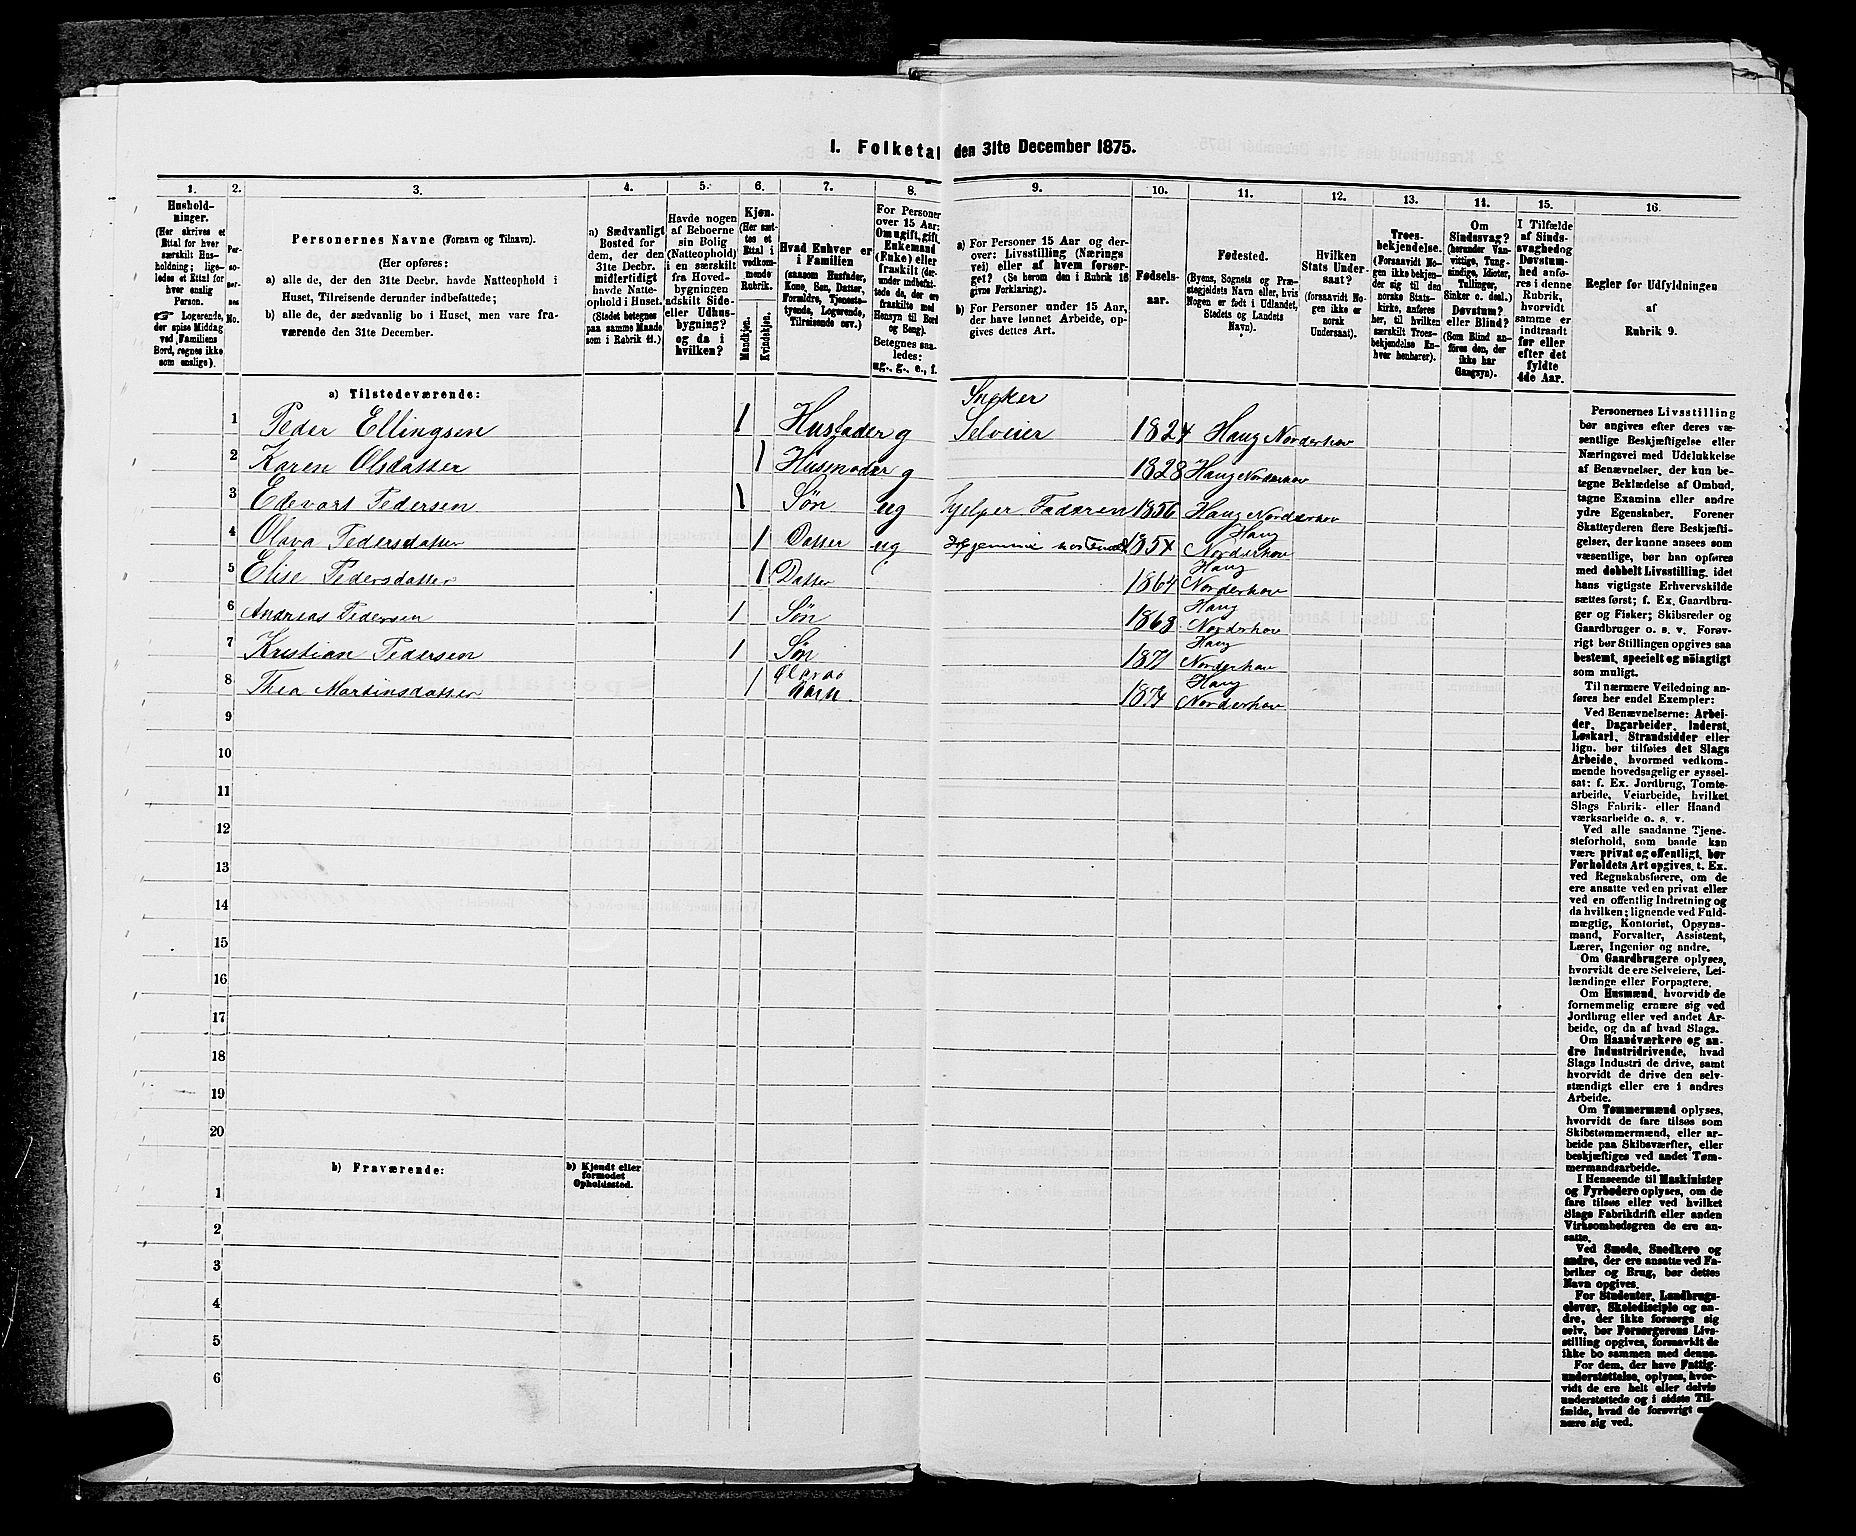 1. Folketal den 31te December 1875.
1. 2. 3. 4. 5. 6. 7. 8. 9. 10. 11. 12. 13. 14. 15. 16.
Hushold-
ninger.
(Her skrives et
Ettal for hver
særskilt Hus-
holdning; lige-
ledes et Ettal for
hver enslig
Person.
☞ Logerende,
der spise Middag
ved Familiens
Bord, regnes ikke
som enslige).
Per-
so-
ner-
nes
No.
Personernes Navne (Fornavn og Tilnavn).
(Her opføres:
a) alle de, der den 31te Decbr. havde Natteophold i
Huset, Tilreisende derunder indbefattede;
b) alle de, der sædvanlig bo i Huset, men vare fra-
værende den 31te December.
a) Sædvanligt
Bosted for
dem, der den
31te Decbr.
midlertidigt
havde Natte-
ophold i Huset.
(Stedet betegnes
paa samme Maade
som i Rubrik 11.)
Havde nogen
af Beboerne
sin Bolig
(Natteophold)
i en særskilt
fra Hoved-
bygningen
adskilt Side-
eller Udhus-
bygning?
og da i
hvilken?
Kjøn.
(Her sæt-
tes et
Ettal i
vedkom-
mende
Rubrik.
Mandkjøn.
Kvindekjøn.
Hvad Enhver er
i Familien
(saasom Husfader,
Kone, Søn, Datter,
Forældre, Tjeneste-
tyende, Logerende,
Tilreisende osv.)
For Personer
over 15 Aar:
Om ugift, gift,
Enkemand
(Enke) eller
fraskilt (der-
under indbefat-
tede da, der er
fraskilte med
Hensyn til Bord
og Seng).
Betegnes saa-
ledes:
ug., g., e., f.
a) For Personer 15 Aar og der-
over: Livsstilling (Nærings
vei) eller af hvem forsør-
get? (Se herom den i Rubrik 16
givne Forklaring).
b) For Personer under 15 Aar,
der have lønnet Arbeide, op-
gives dettes Art.
Fødsels-
aar.
Fødested.
(Byens, Sognets og Præ-
stegjeldets Navn eller, hvis
Nogen er født i Udlandet,
Stedets og Landets
Navn).
Hvilken
Stats Under-
saat?
(forsaavidt No-
gen ikke er
norsk
Undersaat).
Troes-
bekjendelse.
(Forsaavidt No-
gen ikke bekjen-
der sig til den
norske Stats-
kirke, anføres
her, til hvilken
særskilt Troes-
bekjendelse En-
hver henhører).
Om
Sindssvag?
(herunder Van-
vittige, Tung-
sindige, Idioter,
Tullinger,
Sinker o. desl.)
Døvstum?
eller Blind?
(Som Blind an-
føres den, der
ikke har
Gangsyn).
I Tilfælde
af Sinds-
svaghed og
Døvstum-
hed anfø-
res i denne
Rubrik,
hvorvidt
samme er
indtraadt
før eller
efter det
fyldte
4de Aar.
Regler for Udfyldningen
af
Rubrik 9.
a) Tilstedeværende:
Snøker
1 Peder Ellingsen 1 Husfader g Selveier 1824 Haug Norderhov
2 Karen Olsdatter 1 Husmoder g 1828 Haug Norderhov
3 Edevart Pedersen 1 Søn ug hjelper Faderen 1856 Haug Norderhov
4 Olava Pedersdatter 1 Datter ug 1854 Haug
Norderhov
5 Elise Pedersdatter 1 Datter 1864 Haug
Norderhov
6 Andreas Pedersen 1 Søn 1868 Haug
Norderhov
7 Kristian Pedersen 1 Søn 1871 Haug
Norderhov
8 Thea Martinsdatter 1 Olavas
Barn 1874 Haug
Norderhov
9
10
11
12
13
14
15
16
17
18
19
20
b) Fraværende:
b) Kjendt eller
formodet
Opholdssted.
1
2
3
4
5
6
Personernes Livsstilling
bør angives efter deres væ-
sentlige Beskjæftigelse eller
Næringsvei med Udelukkelse
af Benævnelser, der kun be-
tegne Beklædelse af Ombud,
tagne Examina eller andre
ydre Egenskaber. Forener
Skatteyderen flere Beskjæfti-
gelser, der kunne ansees som
væsentlige, bør han opføres
med dobbelt Livsstilling, idet
hans vigtigste Erhvervskilde
sættes først; f. Ex. Gaardbru-
ger og Fisker; Skibsreder og
Gaardbruger o. s. v. Forøv-
rigt bør Stillingen opgives saa
bestemt, specielt og nøiagtigt
som muligt.
Til nærmere Veiledning an-
føres her endel Exempler:
Ved Benævnelserne: Arbei-
der, Dagarbeider, Inderst,
Løskarl, Strandsidder eller
lign. bør tilføies det Slags
Arbeide, hvormed vedkom-
mende hovedsagelig er syssel-
sat: f. Ex. Jordbrug, Tomte-
arbeide, Veiarbeide, hvilket
Slags Fabrik- eller Haand
værksarbeide o. s. v.
Ved alle saadanne Tjene-
steforhold, som baade kan
være privat og offentligt, bør
Forholdets Art opgives, t. Ex.
ved Regnskabsførere, om de
ere ansatte ved en privat eller
ved en offentlig Indretning og
da hvilken; lignende ved Fuld-
mægtig, Kontorist, Opsyns-
mand, Forvalter, Assistent,
Lærer, Ingeniør og andre.
Om Gaardbrugere oplyses,
hvorvidt de ere Selveiere, Lei-
lændinge eller Forpagtere.
Om Husmænd, hvorvidt de
fornemmelig ernære sig ved
Jordbrug eller ved andet Ar-
beide, og da af hvad Slags.
Om Haandværkere og an-
dre Industridrivende, hvad
Slags Industri de drive, samt
hvorvidt de drive den selv-
stændigt eller ere i andres
Arbeide.
Om Tømmermænd oplyses,
hvorvidt de fare tilsøs som
Skibstømmermænd, eller ar-
beide paa Skibsværfter, eller
beskjæftiges ved andet Tøm-
mermandsarbeide.
I Henseende til Maskinister
og Fyrbødere oplyses, om de
fare tilsøs eller ved hvilket
Slags Fabrikdrift eller anden
Virksomhedsgren de ere an-
satte.
Ved Smede, Snedkere og
andre, der ere ansatte ved Fa-
briker og Brug, bør dettes
Navn opgives.
For Studenter, Landbrugs-
elever, Skoledisciple og an-
dre, der ikke forsørge sig
selv, bør Forsørgerens Livs-
stilling opgives, forsaavidt de
ikke bo sammen med denne.
For dem, der have Fattig-
understøttelse, oplyses, hvor-
vidt de ere helt eller delvis
understøttede og i sidste Til-
fælde, hvad de forøvrigt er-
nære sig ved.